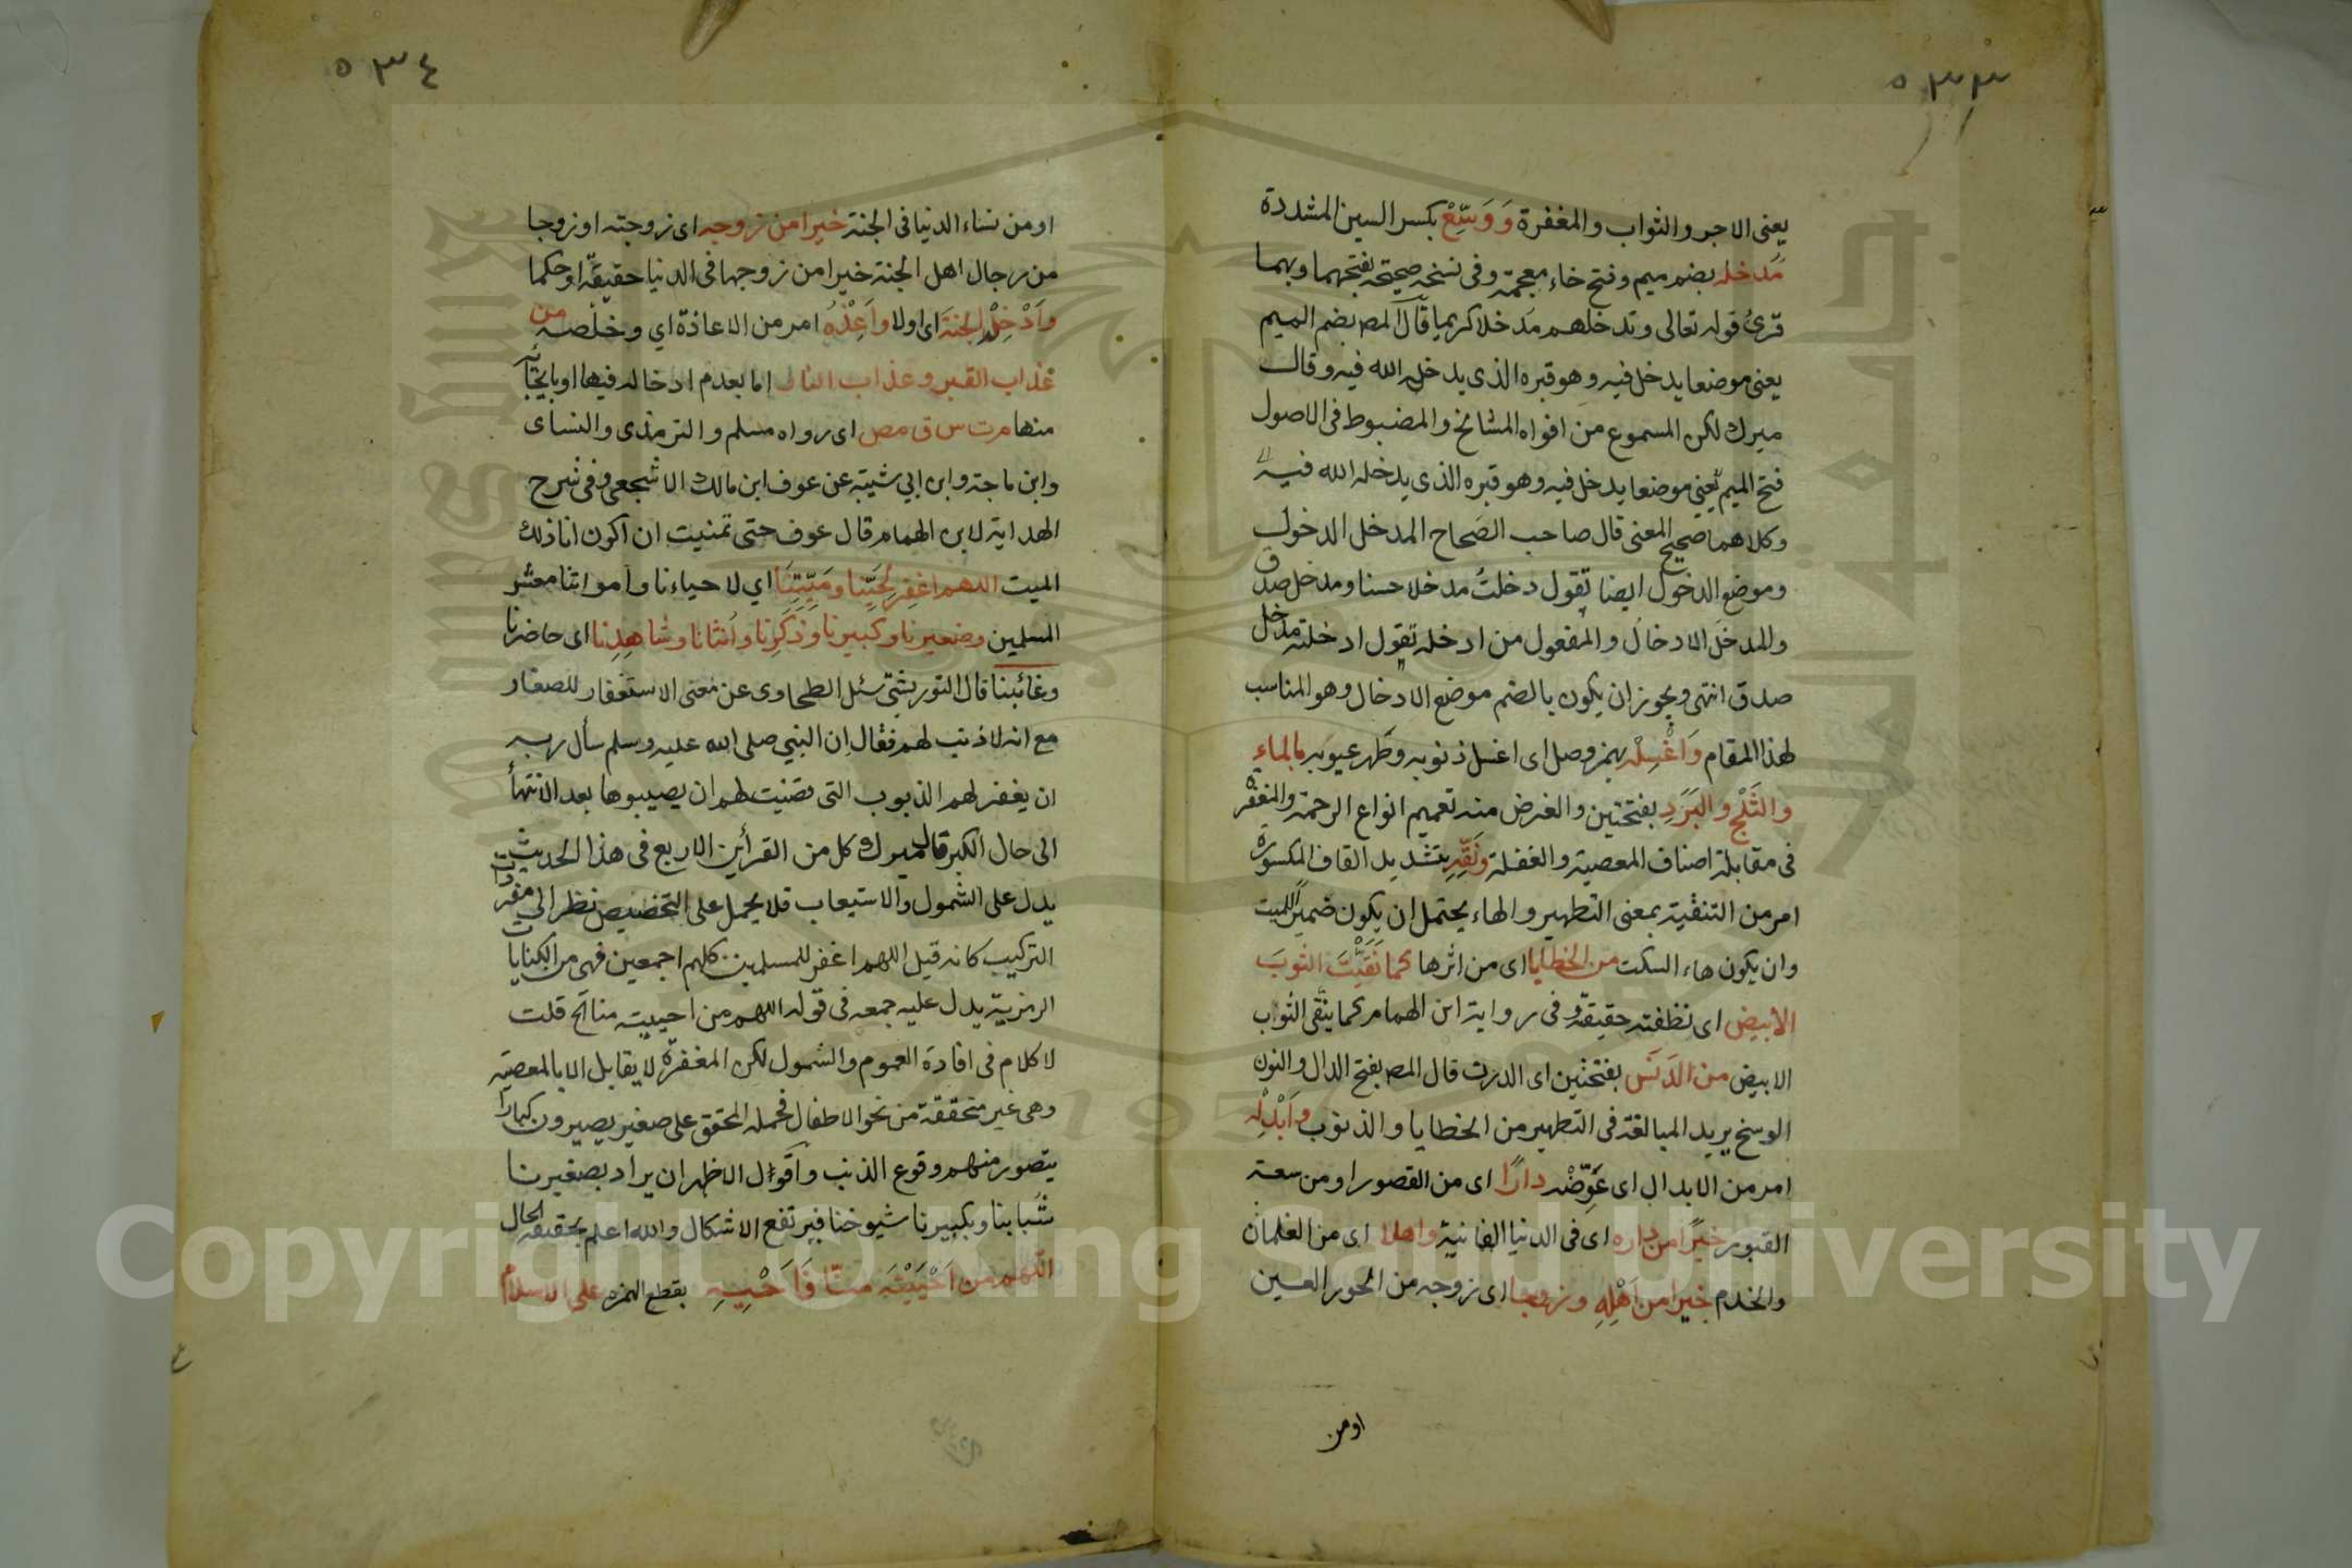 ٥٣٣
يعنى الاجر والثواب والمغفرة وَوَسِّعْ بكسر السين المشددة
مُدخله بضم ميم وفتح خاء معجمة وفى نسخة صحيحة بفتحهما وبهما
قرئ قوله تعالى وندخلهم مدخلا كريما قال المص بضم الميم
يعنى موضعا يدخل فيه وهو قبره الذى يدخله الله فيه وقال
ميرك لكن المسموع من افواه المشائخ والمضبوط فى الاصول
فتح الميم يعنى موضعا يدخل فيه وهو قبره الذى يدخله الله فيه
وكلاهما صحيح المعنى قال صاحب الصحاح المدخل الدخول
وموضع الدخول ايضا تقول دخلتُ مدخلا حسنا ومدخل صدق
والمدخل الادخال والمفعول من ادخله تقول ادخلته مدخل
صدق انتهى ويجوز ان يكون بالضم موضع الادخال وهو المناسب
لهذا المقام وَاغْسِلْه بهمز وصل اى اغسل ذنوبه وطهر عيوبه بالماء
والثَلْجِ والبَرَدِ بفتحتين والغرض منه تعميم انواع الرحمة والمغفرة
فى مقابلة اصناف المعصية والغفلة ونَقِّهِ بتشديد القاف المكسورة
امر من التنقية بمعنى التطهير والهاء يحتمل ان يكون ضميرا للميت
وان يكون هاء السكت من الخطايا اى من اثرها كما نَقَّيْتَ الثوبَ
الابيض اى نظفته حقيقة وفى رواية ابن الهمام كما ينقى الثواب
الابيض من الدَنَس بفتحتين اى الدرن قال المص بفتح الدال والنون
الوسخ يريد المبالغة فى التطهير من الخطايا والذنوب وأبْدِلْه
امر من الابدال اى عَوِّضْه دارًا اى من القصور او من سعة
القبور خيرًا من داره اى فى الدنيا الفانية واهلا اى من الغلمان
والخدم خيرا من أهْلِهِ وزوجا اى زوجه من الحور العين
او من
٥٣٤
او من نساء الدنيا فى الجنة خيرا من زوجه اى زوجته او زوجا
من رجال اهل الجنة خيرا من زوجها فى الدنيا حقيقة او حكما
وأَدْخِلْه الجنةَ اى اولا وأَعِذْهُ امر من الاعاذة اي وخلصه من
عذاب القبر وعذاب النار اما بعدم ادخاله فيها او بانجائه
منها مرت س ق مص اى رواه مسلم والترمذى والنساى
وابن ماجة وابن ابي شيبة عن عوف ابن مالك الاشجعى وفى شرح
الهداية لابن الهمام قال عوف حتى تمنيت ان اكون انا ذلك
الميت اللهم اغفر لِحَيِّنا ومَيِّتِنَا اي لاحياءنا وامواتنا معشر
المسلمين وصغيرنا وكبيرنا وذَكَرِنا وأنثانا وشاهدنا اى حاضرنا
وغائبنا قال التوربشتى سئل الطحاوى عن معنى الاستغفار للصغار
مع انه لا ذنب لهم فقال ان النبى صلى الله عليه وسلم سأل ربه
ان يغفر لهم الذنوب التى قضيت لهم ان يصيبوها بعد الانتهأ
الى حال الكبر قال ميرك كل من القرأين الاربع فى هذا الحديث
يدل على الشمول والاستيعاب فلا يحمل على التخصيص نظر الى مفردات
التركيب كانه قيل اللهم اغفر للمسلمين كلهم اجمعين فهى من الكنايات
الرمزية يدل عليه جمعه فى قوله اللهم من احييته منا الخ قلت
لا كلام فى افادة العموم والشمول لكن المغفرة لا يقابل الا بالمعصية
وهى غير متحققة من نحو الاطفال فحمله المحقق على صغير يصيرون كبارا
يتصور منهم وقوع الذنب واقول الاظهر ان يراد بصغيرنا
شُبابنا وبكبيرنا شيوخنا فيرتفع الاشكال والله اعلم بحقيقة الحال
اللهم من أحْيَيْتَه منّا فَأَحْيِهِ بقطع الهمزة على الاسلام
Copyright © King Saud University